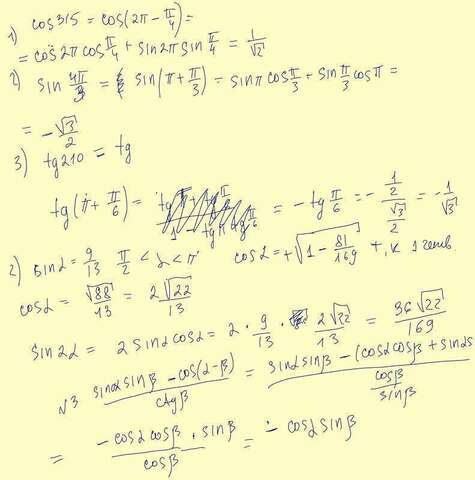 1) cos315 = cos(2π − π/4) =
= cos2π cos π/4 + sin2π sin π/4 = 1/√2
2) sin 4π/3 = sin(π + π/3) = sinπ cos π/3 + sin π/3 cosπ =
= −√3/2
3) tg210 = tg
tg(π + π/6) = = −tg π/6 = − (1/2)/(√3/2) = −1/√3
2) sinα = 9/13 π/2 < α < π cosα = +√(1 − 81/169) т.к 1 четв.
cosα = √88/13 = 2√22/13
sin2α = 2 sinα cosα = 2 · 9/13 · 2√22/13 = 36√22/169
√3 (sinα sinβ − cos(α−β))/ctgβ = (sinα sinβ − (cosα cosβ + sinα s)/(cosβ/sinβ)
= (−cosα cosβ · sinβ)/cosβ = − cosα sinβ